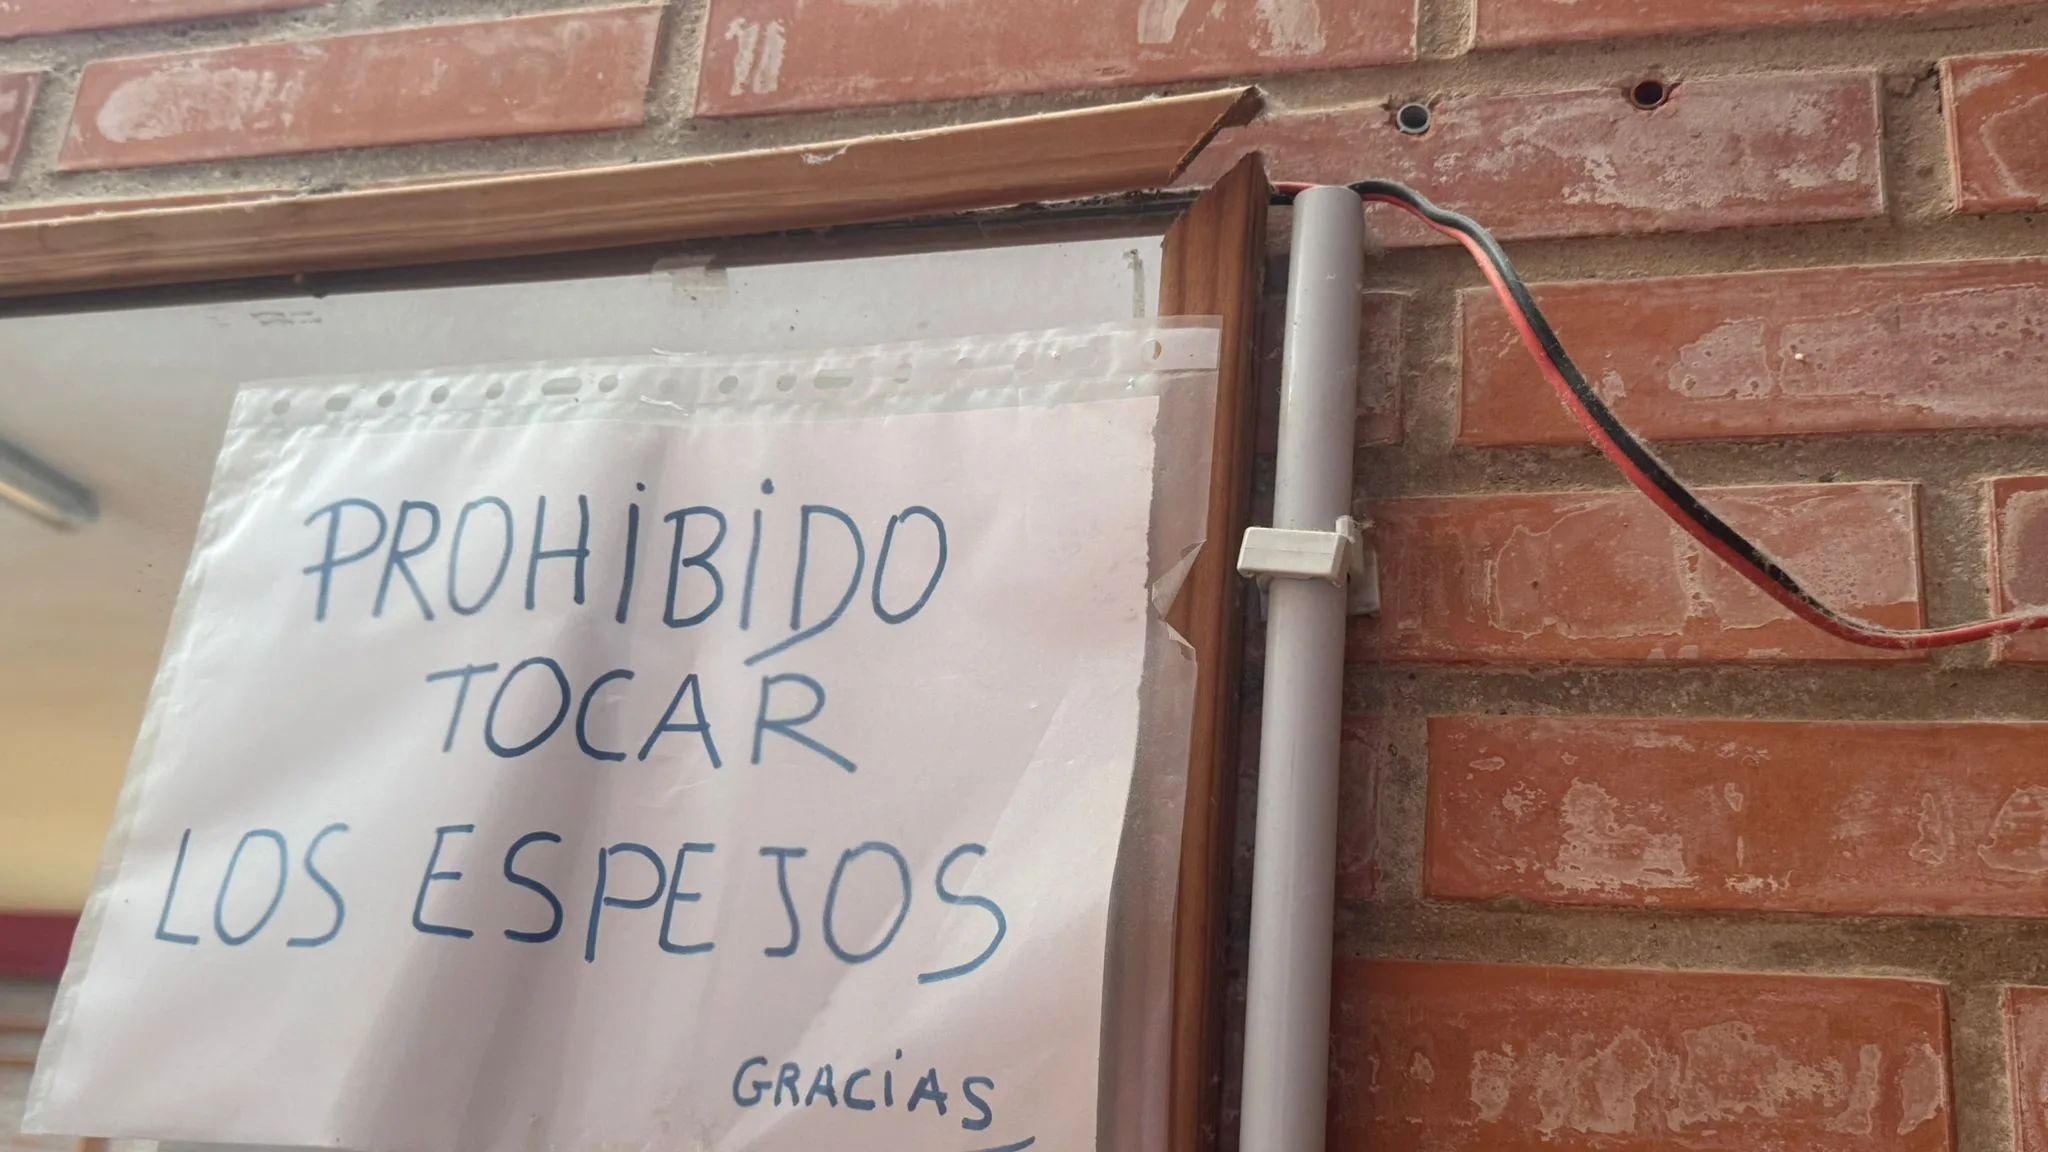 PROHIBIDO
TOCAR
LOS ESPEJOS
GRACIAS